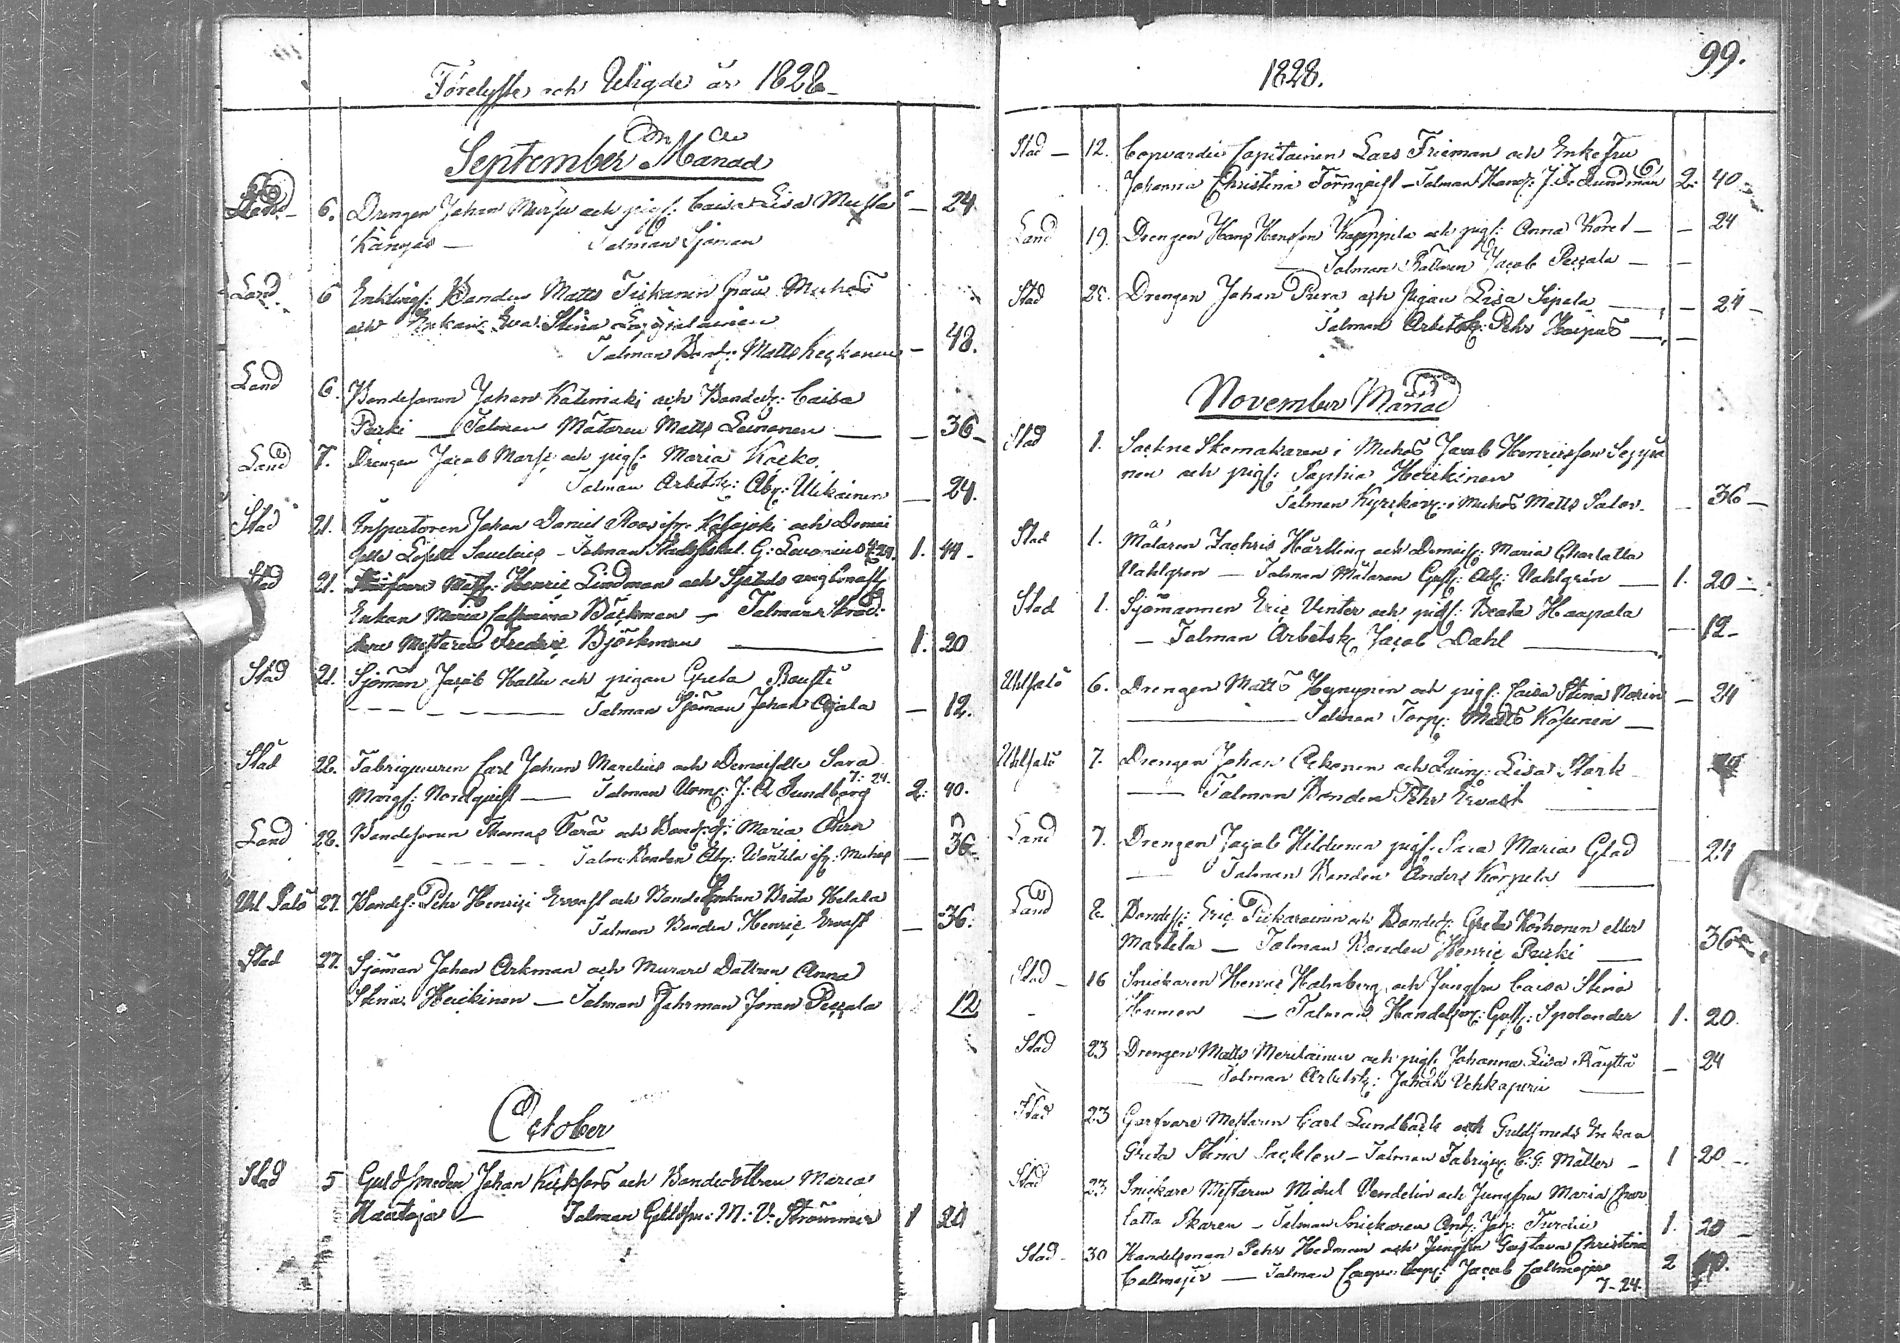 Förelyste och Wigde år 1828
September Månad
Land 6. Drengen Johan Mursu och pig: Caisa Lisa Musta — 24
Kangas — Talman Sjöman
Land 6 Enkling: Bonden Matts Tiskanen från Muhos
och Enkan Eva Stina
Talman Bond: Matts Keskanen — 48.
Land 6. Bondesonen Johan Katimaki och Bonded: Caisa
Perki — Talman Mätaren Matts Leinonen — 36
Land 7. Drengen Jacob Marsi och pig: Maria Kaeko
Talman Arbetsk: Abr: Ukkainen — 24.
Stad 21. Inspectoren Johan Daniel Roos ifr: Kalajoki och Demoi
selle Lovisa Savelius — Talman Stadsfiskal G: Levonius 7-24. 1. 44
Stad 21. Henric Lindman och
Enkan Maria Catharina Bäckman — Talman Skräd:
dare Mestaren Fredric Björkman — 1. 20
Stad 21. Sjöman Jacob Hallu och pigan Greta Rousti
Talman Sjöman Johan Ojala — 12.
Stad 28. Fabriqueuren Carl Johan Marelius och Demoiselle Sara
Marg: Nordquist — Talman Kom: J: A Sundberg 7:24. 2: 40.
Land 28. Bondesonen Thomas Sarä och Bond:d: Maria
Talm: Bonden Abr: Wäntila ifr: Muhos — 36
Uhl Salo 27. Bondes: Pehr Henric Ervast och Bonde Enkan Brita Helala
Talman Bonden Henric Ervast — 36.
Stad 27. Sjöman Johan Arkman och Murare Dottren Anna
Stina Heickinen — Talman Fahrman Jöran Pessala 12
October
Stad 5 Guldsmeden Johan Kickfors och Bondedottren Maria
Haataja — Talman Guldsm: M: V: Strömmer 1 20
1828.
99.
Stad — 12. Copvardie Capitainen Lars Frieman och Enkefru
Johanna Christina Törnqvist — Talman Hand: J. G. Sundman 2. 40
Land 19. Drengen Hans Hansson Kauppila och pig: Anna Koret — 24
Talman Rättaren Jacob Pessala —
Stad 26. Drengen Johan Pura och Pigan Lisa Sipola — 24
Talman Arbetsk: Pehr Haipus —
November Månad
Stad 1. Sockne Skomakaren i Muhos Jacob Henricsson Seppä
nen och pig: Sophia Heickinen
Talman Kyrckov: i Muhos Matts Salov. — 36
Stad 1. Målaren Zachris Härlling och Demois: Maria Charlotta
Wahlgren — Talman Målaren Gust: Ad: Wahlgren — 1. 20
Stad 1. Sjömannen Eric Vinter och pig: Beata Haapala
— Talman Arbetsk: Jacob Dahl — 12
Uhlsalo 6. Drengen Matts Hynynen och pig: Caisa Stina Norin — 24
Talman Torp: Matts Kosunen —
Uhlsalo 7. Drengen Johan Pekonen och Quin: Lisa Stark
Talman Bonden Pehr Ervast
Land 7. Drengen Jacob Hildunen pig: Sara Maria Glad — 24
Talman Bonden Anders Korpela
Land 8. Bondes: Eric Pickarainen och Bonded: Greta Korhonen eller
Martela — Talman Bonden Henric Perki — 36
Stad — 16 Snickaren Henric Holmberg och Jungfru Caisa Stina
Human — Talman Handelsm: Gust: Spolander 1. 20.
Stad 23 Drengen Matts Merilainen och pig: Johanna Lisa Räyttä — 24
Talman Arbetsk: Johan Vehkaperä
Stad 23 Garfvare Mestaren Carl Lundbäck och Guldsmeds Enkan
Greta Stina Sacklen — Talman Fabriq: C: G: Möller — 1 20
Stad 23 Snickare Mestaren Michel Vendelin och Jungfru Maria Char
lotta Skaren — Talman Snickaren And: Joh: Turdin 1. 20
Stad 30 Handelsman Pehr Hedman och Jungfru Gustava Christina
Collmejer — Talman Copv: Cap: Jacob Collmejer 7-24. 2 40.